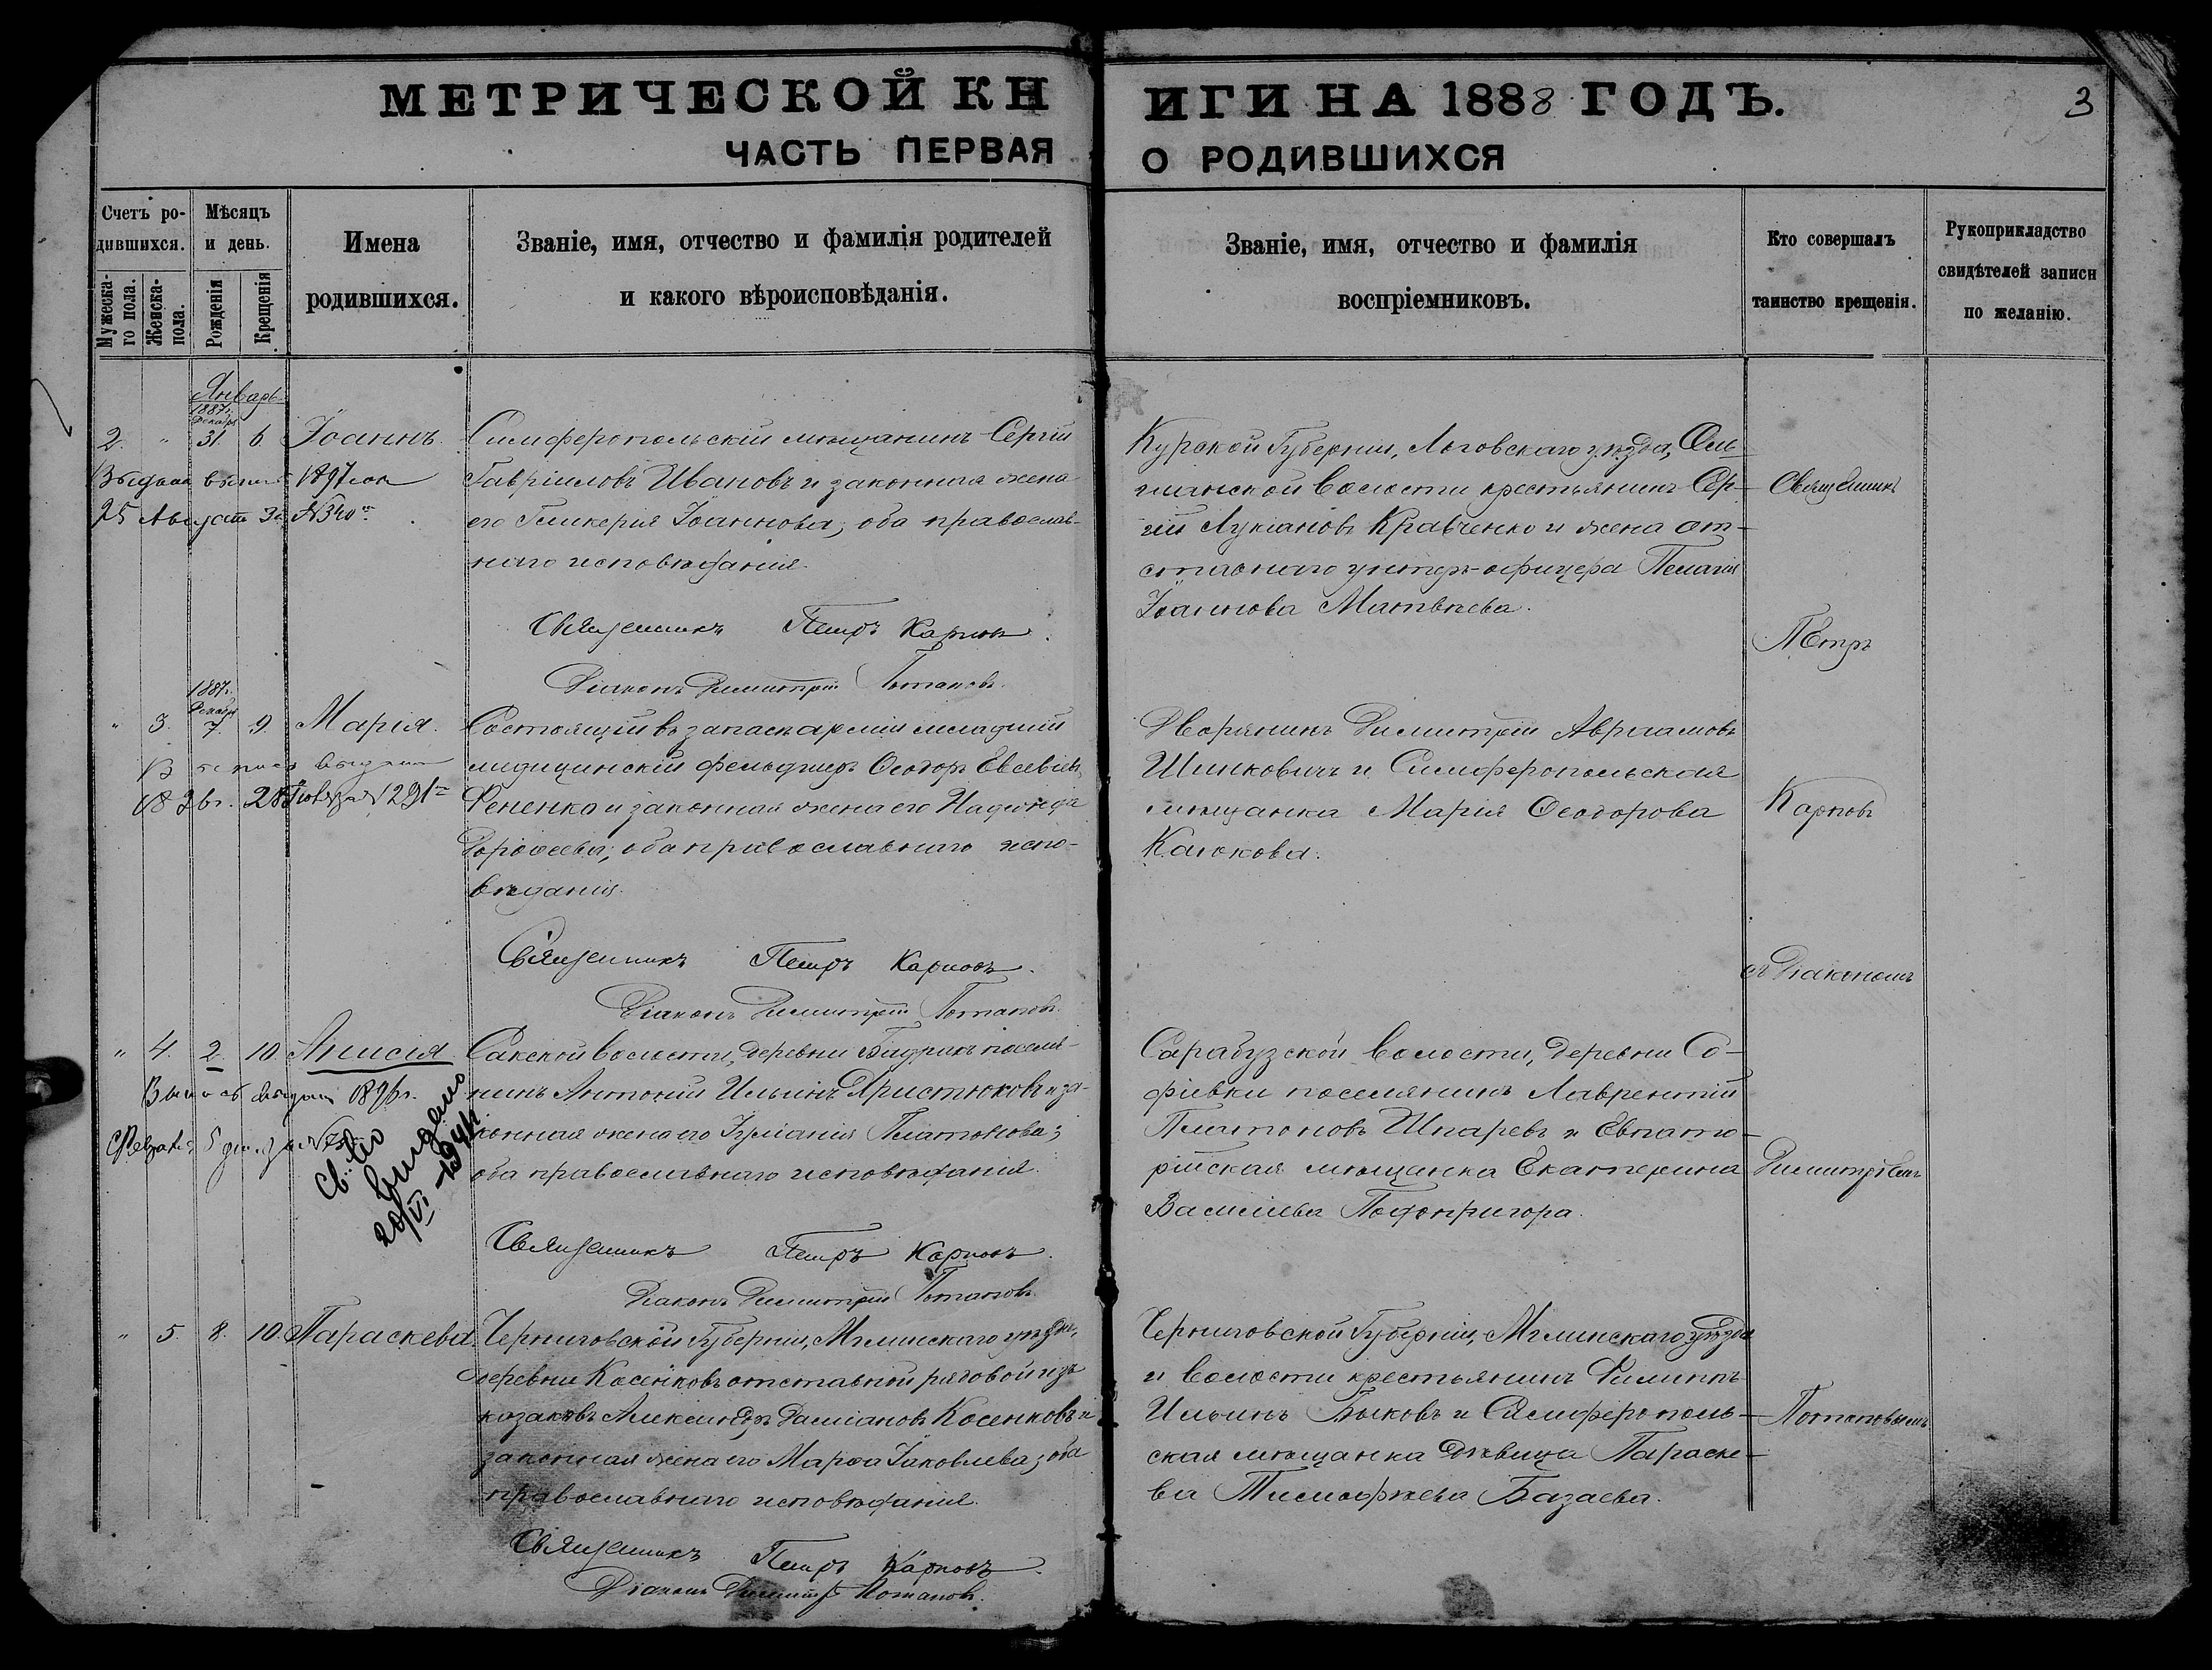 МЕТРИЧЕСКОЙ КНИГИ НА 1888 ГОДЪ.
3
ЧАСТЬ ПЕРВАЯ О РОДИВШИХСЯ
Счетъ родившихся.
Мужеска-
го пола.
Женска-
пола.
Мѣсяцъ
и день.
Рожденія
Крещенія
Имена
родившихся.
Званіе, имя, отчество и фамилія родителей
и какого вѣроисповѣданія.
Званіе, имя, отчество и фамилія
воспріемниковъ.
Кто совершалъ
таинство крещенія.
Рукоприкладство
свидѣтелей записи
по желанію.
Январь
1887г.
Декабря
2. " 31. 6. Іоаннъ.
25 Августа За №340
Симферопольскій мѣщанинъ Сергій
Гавріиловъ Ивановъ и законная жена
его Гликерія Іоаннова, оба православ-
наго исповѣданія.
Священникъ Петръ Карповъ.
Діаконъ Димитрій Потаповъ.
Курской Губерніи, Льговскаго уѣзда,
волости крестьянинъ Сер-
гій Лукіановъ Кравченко и жена от-
ставнаго унтеръ-офицера Пелагія
Іоаннова Матвѣева.
1887г.
Декабря
" 3. 7. 9. Марія.
Состоящій въ запасѣ арміи младшій
медицинскій фельдшеръ Ѳеодоръ Евсевіевъ
и законная жена его Надежда
Дороѳеева, оба православнаго испо-
вѣданія.
Священникъ Петръ Карповъ.
Діаконъ Димитрій Потаповъ.
Дворянинъ Димитрій Авраамовъ
Шинковичъ и Симферопольская
мѣщанка Марія Ѳеодорова
Каюкова.
" 4. 2. 10. Анисія
Выпись выдана 1896г.
Февраля 5 дня за №
Св. во
выдано
20/VI
Сакской волости, деревни поселя-
нинъ Антоній Ильинъ Христюковъ и за-
конная жена его Іуліанія Платонова;
оба православнаго исповѣданія.
Священникъ Петръ Карповъ.
Діаконъ Димитрій Потаповъ.
Сарабузской волости, деревни Со-
фіевки поселянинъ Лаврентій
Платоновъ Шпаревъ и Евпато-
рійская мѣщанка Екатерина
Василіева Подопригора.
" 5. 8. 10. Параскева.
Черниговской Губерніи, Мглинскаго уѣзда,
деревни Косенковъ отставной рядовой изъ
козаковъ Александръ Даміановъ Косенковъ и
законная жена его Марѳа Іаковлева; оба
православнаго исповѣданія.
Священникъ Петръ Карповъ.
Діаконъ Димитрій Потаповъ.
Черниговской Губерніи, Мглинскаго уѣзда
и волости крестьянинъ Филиппъ
Ильинъ Быковъ и Симферополь-
ская мѣщанка дѣвица Параске-
ва Тимоѳеева Базаева.
Священникъ
Петръ
Карповъ
съ Діакономъ
Димитріемъ
Потаповымъ